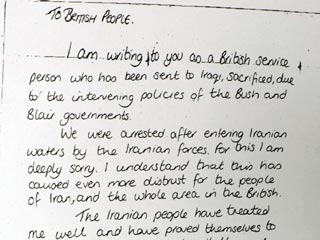 TO BRITISH PEOPLE.
I am writing to you as a British service
person who has been sent to Iraq, sacrificed, due
to the intervening policies of the Bush and
Blair governments.
We were arrested after entering Iranian
waters by the Iranian forces. For this I am
deeply sorry. I understand that this has
caused even more distrust for the people
of Iran, and the whole area in the British.
The Iranian people have treated
me well and have proved themselves to